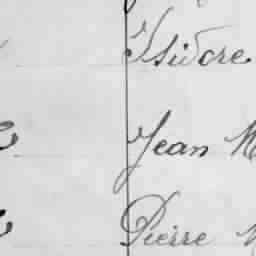 Isidore
Jean M
Pierre